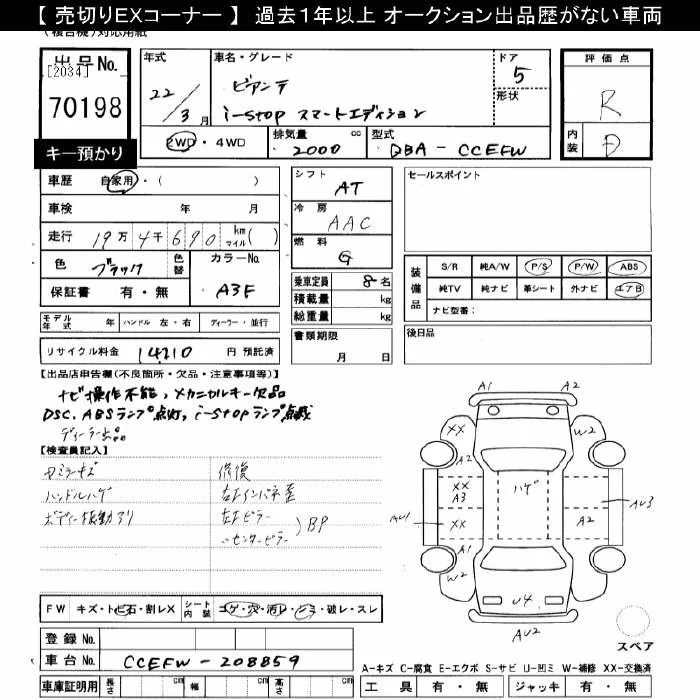 【 売切りEXコーナー 】 過去1年以上 オークション出品歴がない車両
(複合機)対応用紙
出品No.
[2034]
70198
キー預かり
年式
22/3月
車名・グレード
ビアンテ
i-stop スマートエディション
ドア
5
形状
評価点
R
内装
D
2WD・4WD
排気量 cc
2000
型式
DBA - CCEFW
車歴 自家用・( )
車検 年 月
走行 19万4千690 km マイル( )
色 ブラック 色替
カラーNo. A3F
保証書 有・無
シフト
AT
冷房
AAC
燃料
G
乗車定員 8名
積載量 kg
総重量 kg
書類期限
月 日
セールスポイント
装備品
S/R 純A/W P/S P/W ABS
純TV 純ナビ 革シート 外ナビ エアB
ナビ型番:
後日品
モデル年式 年 ハンドル 左・右 ディーラー・並行
リサイクル料金 14710 円 預託済
【出品店申告欄(不良箇所・欠品・注意事項等)】
ナビ操作不能,メカニカルキー欠品
DSC、ABSランプ点灯,i-stopランプ点滅
【検査員記入】
ハンドルハゲ
ボディー振動アリ
修復
BP
FW キズ・トビ石・割レX
シート内装 コゲ・穴・汚レ・シミ・破レ・スレ
登録No.
車台No. CCEFW-208859
車庫証明用 長さ cm 幅 cm 高さ cm
A1 A2
XX W2
A2
XX
A3 ハゲ AU3
AU1 XX A2
A1
W2
U4
AU2
スペア
A-キズ C-腐食 E-エクボ S-サビ U-凹ミ W-補修 XX-交換済
工具 有・無 ジャッキ 有・無